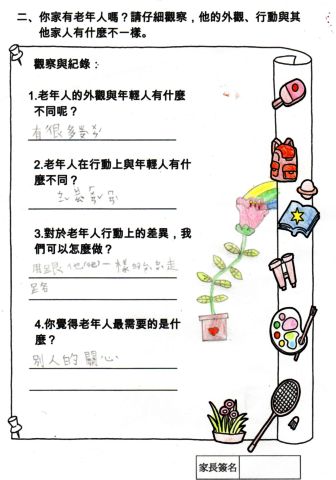 二、你家有老年人嗎？請仔細觀察，他的外觀、行動與其
他家人有什麼不一樣。
觀察與紀錄：
1.老年人的外觀與年輕人有什麼
不同呢？
有很多
2.老年人在行動上與年輕人有什
麼不同？
3.對於老年人行動上的差異，我
們可以怎麼做？
跟他 一樣 走
路
4.你覺得老年人最需要的是什
麼？
別人的關心
家長簽名